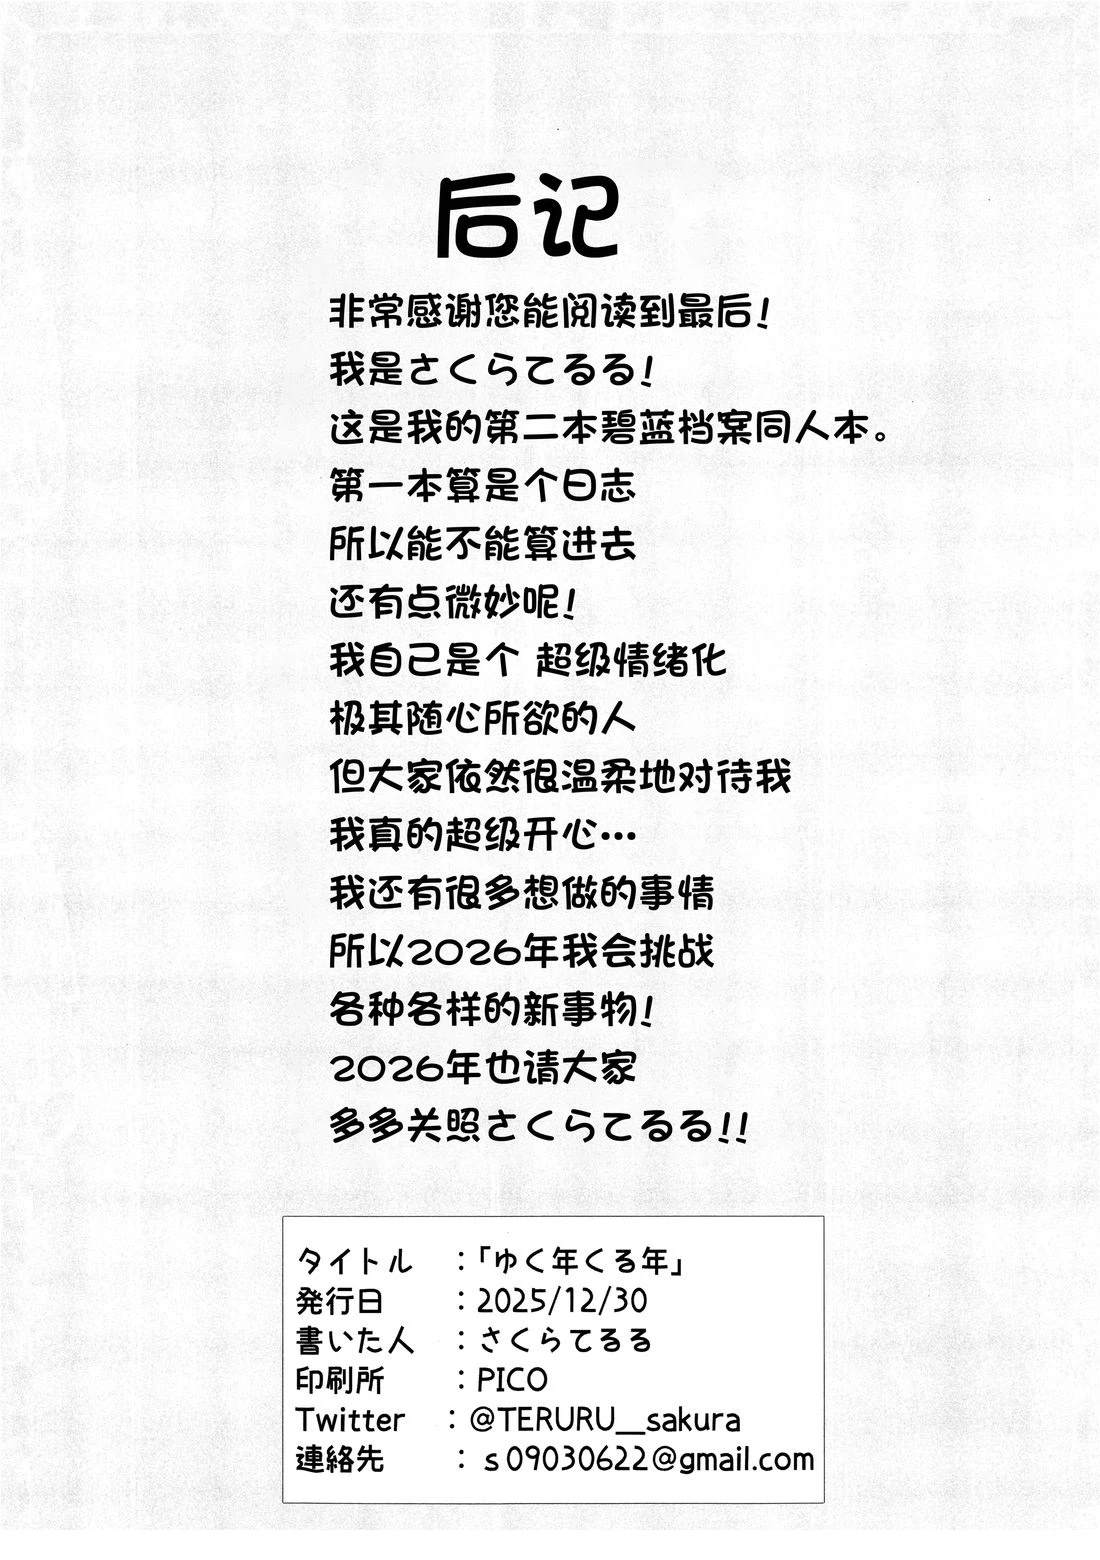 后记
非常感谢您能阅读到最后!
我是さくらてるる!
这是我的第二本碧蓝档案同人本。
第一本算是个日志
所以能不能算进去
还有点微妙呢!
我自己是个 超级情绪化
极其随心所欲的人
但大家依然很温柔地对待我
我真的超级开心…
我还有很多想做的事情
所以2026年我会挑战
各种各样的新事物!
2026年也请大家
多多关照さくらてるる!!
タイトル :「ゆく年くる年」
発行日 :2025/12/30
書いた人 :さくらてるる
印刷所 :PICO
Twitter :@TERURU__sakura
連絡先 :s09030622@gmail.com